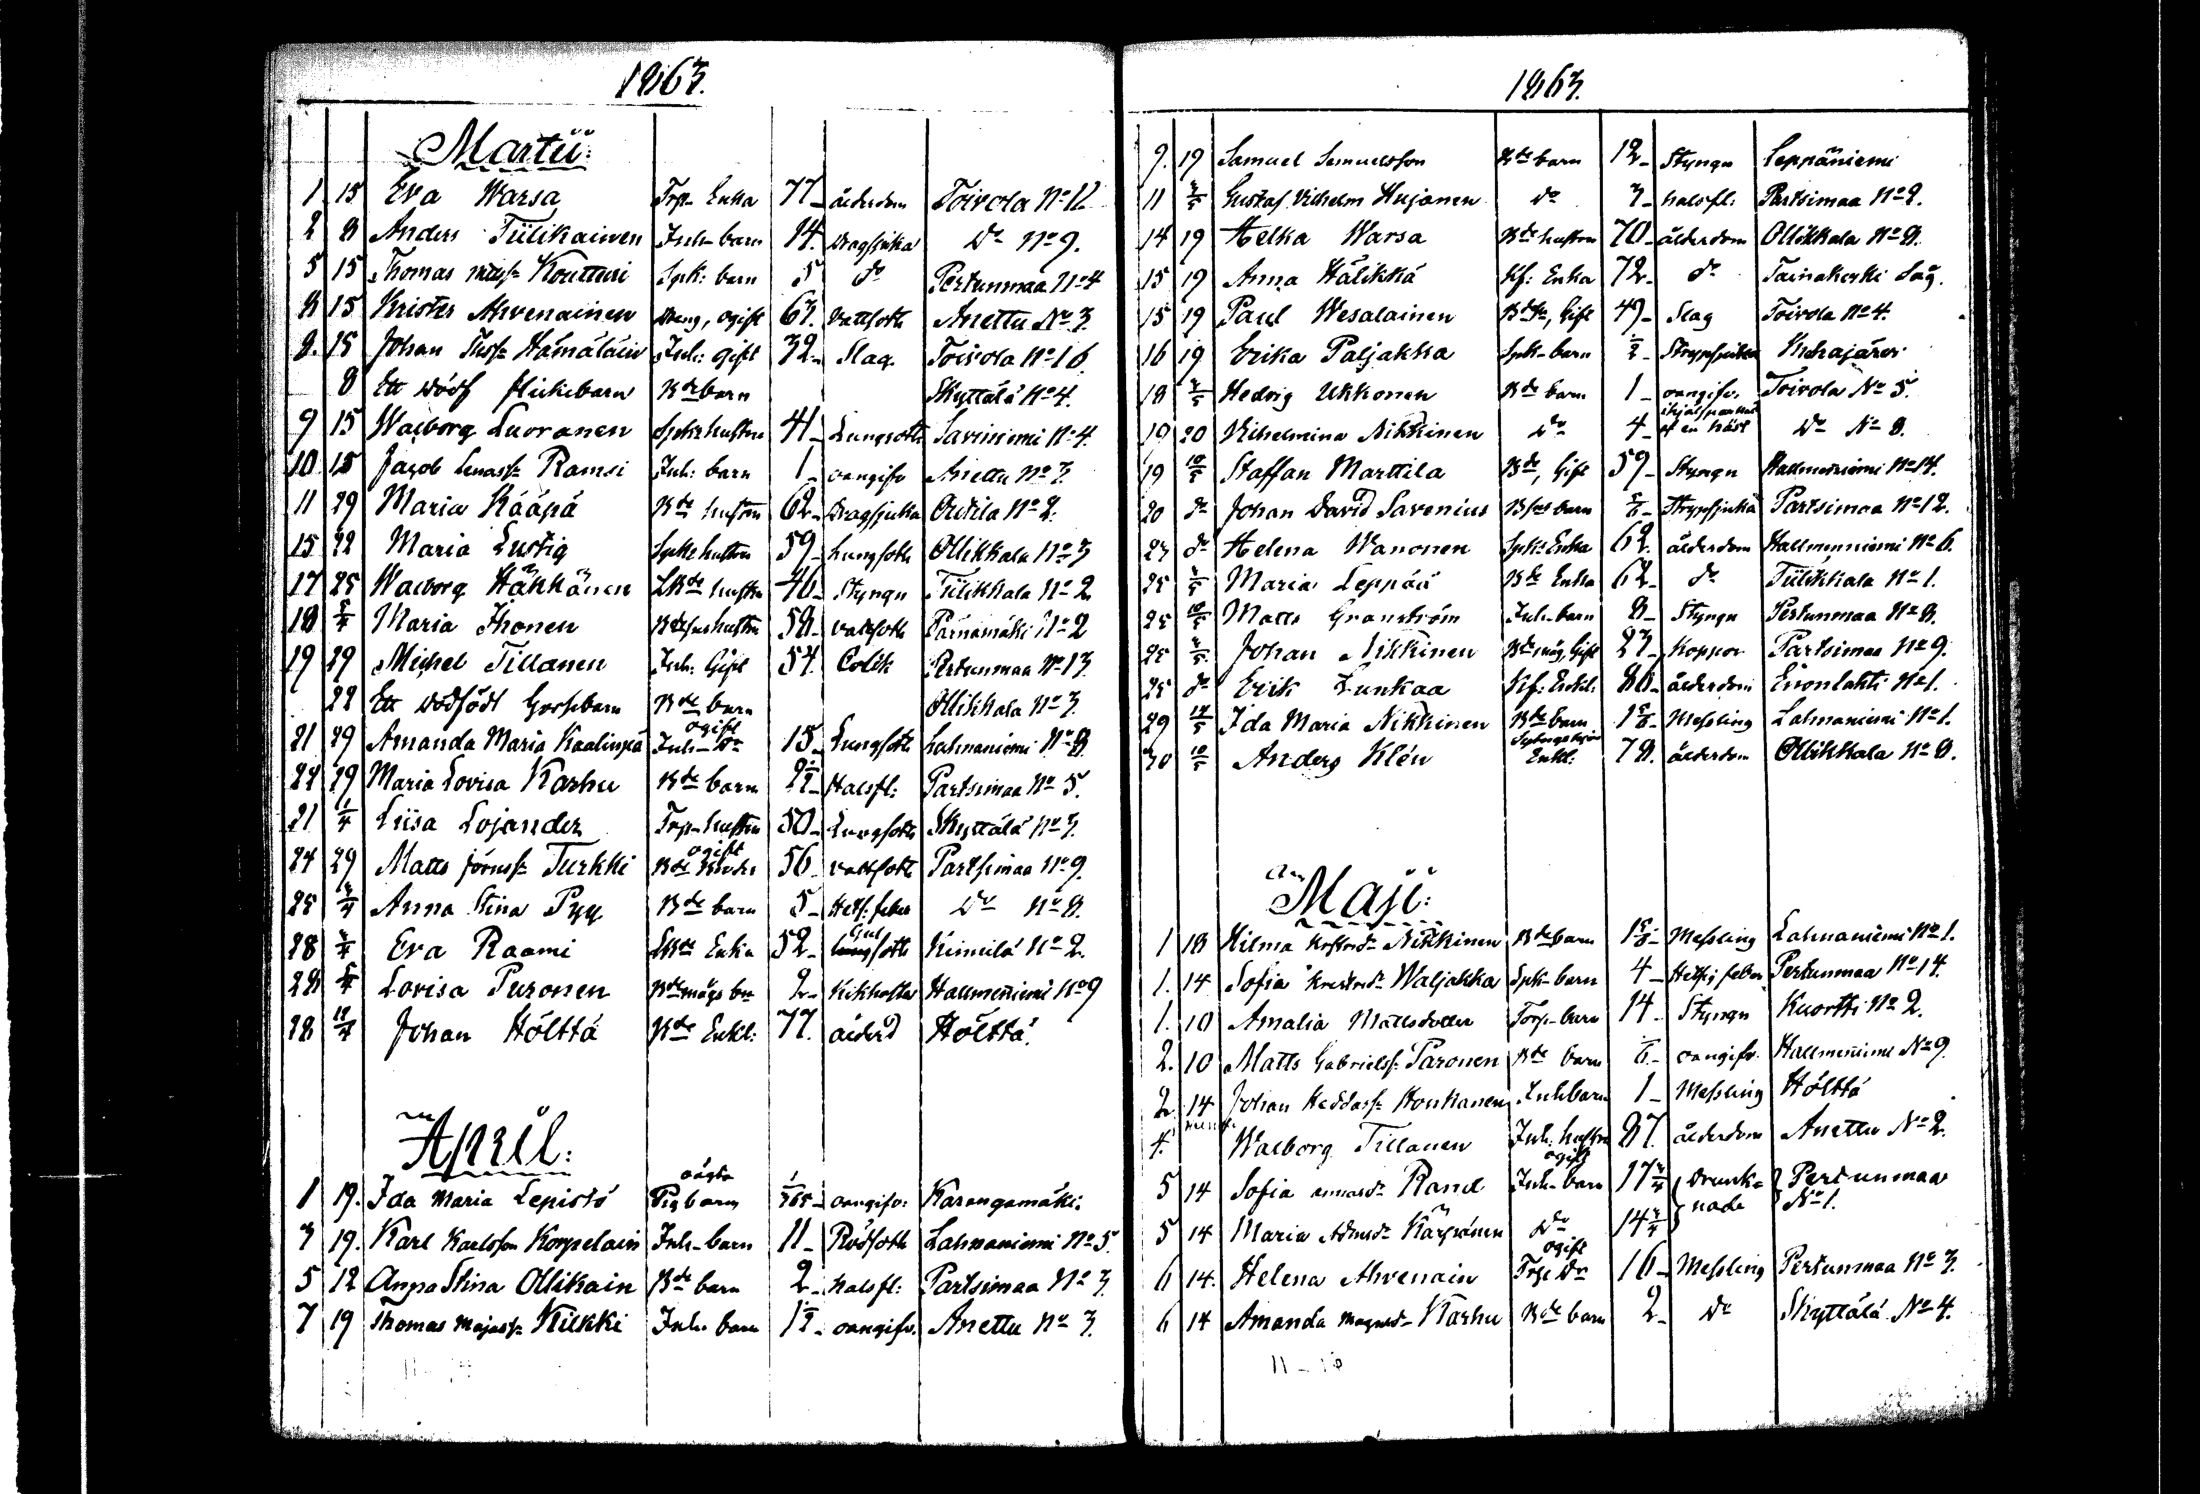 1863.
Martii:
1 15 Eva Warsa Torp. Enka 77 ålderdom Toivola No 12
2 8 Anders Tiilikainen Inh. barn 14. Dragsjuka Do No 9.
5 15 Thomas Koutturi Spk: barn 5 do Pertunmaa No 4
8 15 Krister Ahvenainen Dreng, ogift 63. Vattsoth Anettu No 3.
8. 15 Johan Hämäläin Inh: gift 32 Slag Toivola No 16
8 Ett dödf flickebarn Bde barn Skyttälä No 4.
9 15 Walborg Luoranen Spks hustru 41 Lungsoth Savisiemi No 4.
10 15 Jacob Ramsi Inh: barn 1 oangifv Anettu No 3.
11 29 Maria Kääpä Bde hustru 62 Dragsjuka Outila No 2.
15 22 Maria Lustig Spks hustru 59 Lungsoth Ollikkala No 3
17 25 Walborg Häkkänen hustru 46 Styngn Tiilikkala No 2
18 5/4 Maria Ihonen hustru 58 vattsoth Pärnämäki No 2
19 29 Michel Tillanen Inh: Gift 54. Colik Pertunmaa No 13
22 Ett dödfödt Gossebarn Bde barn Ollikkala No 3.
21 29 Amanda Maria Kaalinpää Inh. Dr ogift 15 Lungsoth Lahnaniemi No 8.
24 29 Maria Lovisa Karhu Bde barn Halsfl: Partsimaa No 5.
21 1/4 Liisa Lojander Torp. hustru 50 Lungsoth Skyttälä No 3.
24 29 Matts Turkki Bde ogift 56 vattsoth Partsimaa No 9.
25 Anna Stina Pyy Bde barn 5 Hets: feber Do No 8.
28 Eva Raami Enka 52 Gul soth Kimilä No 2.
28 Lovisa Puronen Bde mågs bn 2 Kikhosta Hallmeniemi No 9
28 12/4 Johan Hölttä Bde Enkl: 77. ålderd Hölttä.
April:
1 19. Ida Maria Lepistö Pig barn oägta 1/365 oangifv: Karangamäki.
3 19. Karl Karlsson Korpelain Inh. barn 11 Rödsoth Lahnaniemi No 5.
5 12 Anna Stina Ollikain Bde barn 2 halsfl: Partsimaa No 3.
7 19 Thomas Majass. Kukki Inh. barn 1½ oangifv. Anettu No 3.
1863.
9. 19 Samuel Samuelsson Bde barn 12 Styngn Leppäniemi
11 Gustaf Vilhelm Hujanen do 3 halsfl: Partsimaa No 2.
14 19 Helka Warsa Bde hustru 70 ålderdom Ollikkala No 8.
15 19 Anna Hälikkä Kf: Enka 72 do Tainakoski Såg.
15 19 Paul Wesalainen Gift 49 Slag Toivola No 4.
16 19 Erika Paljakka Spk. barn ½ Strypsjukan
18 Hedvig Ukkonen Bde barn 1 oangifv. Toivola No 5.
19 20 Vilhelmina Nikkinen do 4 ihjälsparkad af en häst Do No 8.
19 10/5 Staffan Marttila Bde, Gift 59 Styngn Hallmeniemi No 14.
20 do Johan David Savenius barn Strypsjuka Partsimaa No 12.
23 do Helena Wanonen Spks Enka 62. ålderdom Hallmenniemi No 6.
25 Maria Leppää Bde Enka 62 do Tiilikkala No 1.
25 10/5 Matts Granström Inh. barn 8 Styngn Pertunmaa No 8.
25 Johan Nikkinen Bde måg, Gift 23 Koppor Partsimaa No 9.
25 do Erik Lunkaa Kf: Enkl: 86 ålderdom Enonlahti No 1.
29 Ida Maria Nikkinen Bde barn Messling Lahnaniemi No 1.
30 10/5 Anders Klén Enkl: 78. ålderdom Ollikkala No 8.
Maji:
1 18 Hilma Nikkinen Bde barn Messling Lahnaniemi No 1.
1. 14 Sofia Waljakka Spk. barn 4 Hetsig feber Pertunmaa No 14.
1. 10 Amalia Mattsdotter Torp. barn 14 Styngn Kuortti No 2.
2. 10 Matts Gabrielss. Paronen Bde barn oangifv. Hallmeniemi No 9.
2 14 Johan Heddass. Honkanen Inh barn 1 Messling Hölttä
4. Walborg Tillanen Inh: hustru 87. ålderdom Anettu No 2.
5 14 Sofia Rand Inh. barn ogift 17¾ Drunknade Pertunmaa No 1.
5 14 Maria Adamsdr Kärpänen do 14¾
6 14. Helena Ahvenain Torp Dr ogift 16 Messling Pertunmaa No 3.
6 14 Amanda Magnusdr Karhu Bde barn 2 Do Skyttälä No 4.